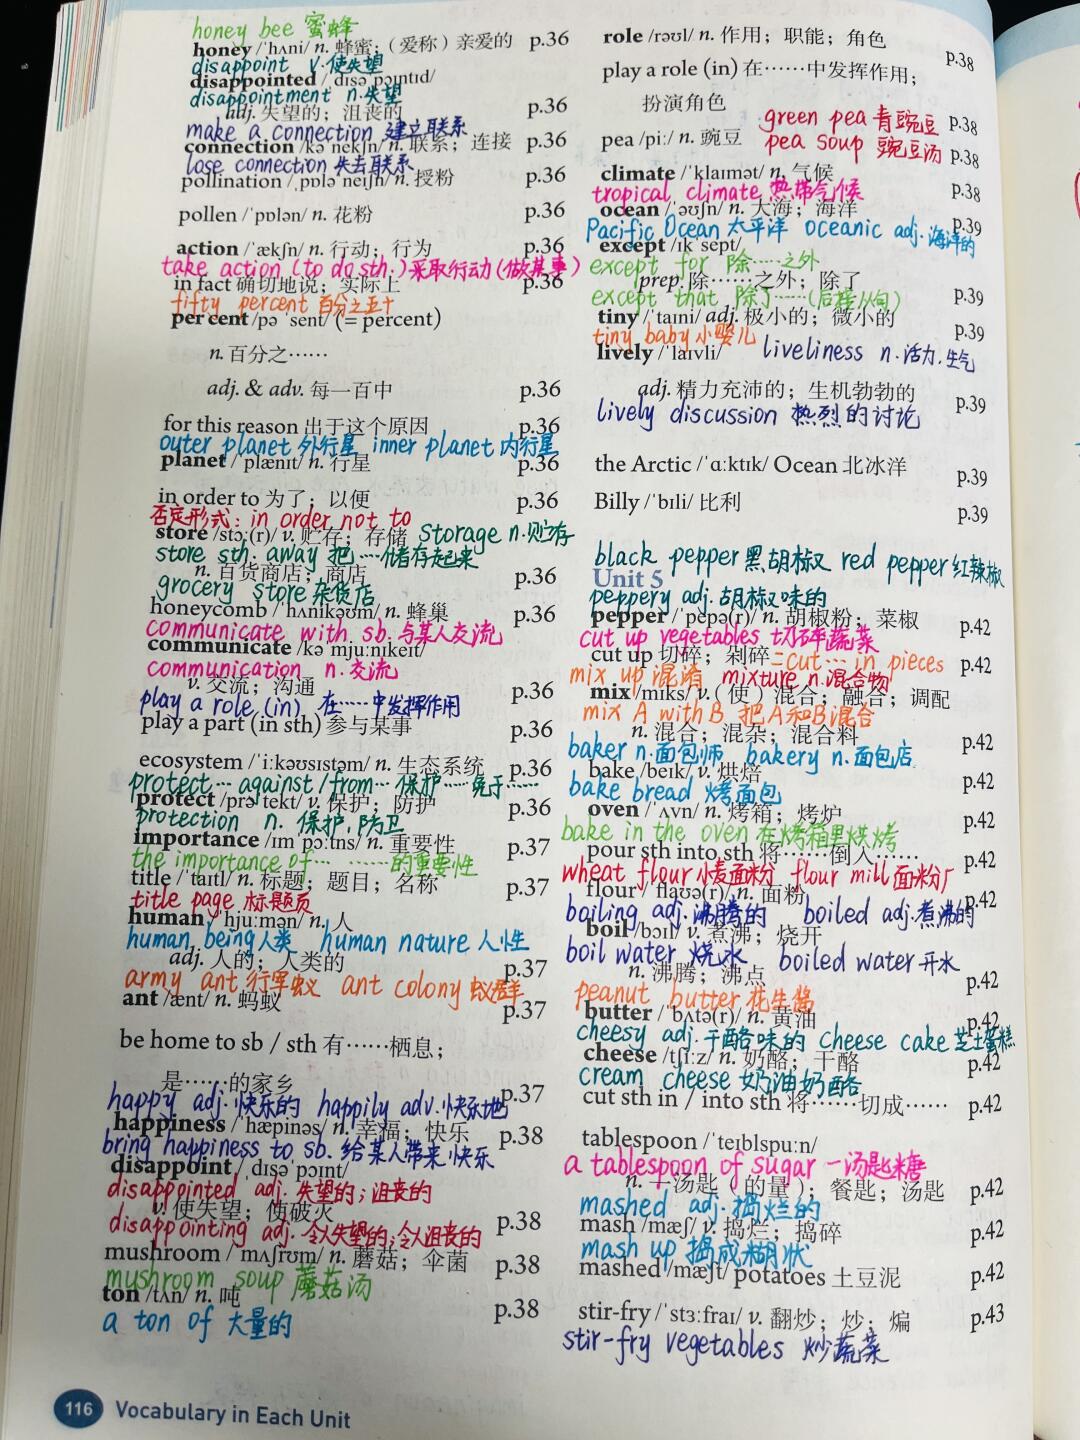 honey bee 蜜蜂
honey /ˈhʌni/ n. 蜂蜜；（爱称）亲爱的 p.36
disappoint v.使失望
disappointed /ˌdɪsəˈpɔɪntɪd/
disappointment n.失望
adj. 失望的；沮丧的 p.36
make a connection 建立联系
connection /kəˈnekʃn/ n. 联系；连接 p.36
lose connection 失去联系
pollination /ˌpɒləˈneɪʃn/ n. 授粉 p.36
pollen /ˈpɒlən/ n. 花粉 p.36
action /ˈækʃn/ n. 行动；行为 p.36
take action (to do sth.) 采取行动(做某事)
in fact 确切地说；实际上 p.36
fifty percent 百分之五十
per cent /pə ˈsent/ (= percent)
n. 百分之……
adj. & adv. 每一百中 p.36
for this reason 出于这个原因 p.36
outer planet 外行星 inner planet 内行星
planet /ˈplænɪt/ n. 行星 p.36
in order to 为了；以便 p.36
否定形式：in order not to
store /stɔː(r)/ v. 贮存；存储 storage n.贮存
store sth. away 把……储存起来
n. 百货商店；商店 p.36
grocery store 杂货店
honeycomb /ˈhʌnikəʊm/ n. 蜂巢 p.36
communicate with sb. 与某人交流
communicate /kəˈmjuːnɪkeɪt/
communication n.交流
v. 交流；沟通 p.36
play a role (in) 在……中发挥作用
play a part (in sth) 参与某事 p.36
ecosystem /ˈiːkəʊsɪstəm/ n. 生态系统 p.36
protect … against / from … 保护……免于……
protect /prəˈtekt/ v. 保护；防护 p.36
protection n. 保护,防卫
importance /ɪmˈpɔːtns/ n. 重要性 p.37
the importance of … ……的重要性
title /ˈtaɪtl/ n. 标题；题目；名称 p.37
title page 标题页
human /ˈhjuːmən/ n. 人
human being 人类 human nature 人性
adj. 人的；人类的 p.37
army ant 行军蚁 ant colony 蚁群
ant /ænt/ n. 蚂蚁 p.37
be home to sb / sth 有……栖息；
是……的家乡 p.37
happy adj.快乐的 happily adv.快乐地
happiness /ˈhæpinəs/ n. 幸福；快乐 p.38
bring happiness to sb. 给某人带来快乐
disappoint /ˌdɪsəˈpɔɪnt/
disappointed adj. 失望的；沮丧的
v. 使失望；使破灭 p.38
disappointing adj. 令人失望的；令人沮丧的
mushroom /ˈmʌʃrʊm/ n. 蘑菇；伞菌 p.38
mushroom soup 蘑菇汤
ton /tʌn/ n. 吨 p.38
a ton of 大量的
role /rəʊl/ n. 作用；职能；角色 p.38
play a role (in) 在……中发挥作用；
扮演角色 p.38
green pea 青豌豆
pea /piː/ n. 豌豆 p.38
pea soup 豌豆汤
climate /ˈklaɪmət/ n. 气候 p.38
tropical climate 热带气候
ocean /ˈəʊʃn/ n. 大海；海洋 p.39
Pacific Ocean 太平洋 oceanic adj. 海洋的
except /ɪkˈsept/
except for 除……之外
prep. 除……之外；除了 p.39
except that 除了……(后接从句)
tiny /ˈtaɪni/ adj. 极小的；微小的 p.39
tiny baby 小婴儿
lively /ˈlaɪvli/ liveliness n.活力,生气
adj. 精力充沛的；生机勃勃的 p.39
lively discussion 热烈的讨论
the Arctic /ˈɑːktɪk/ Ocean 北冰洋 p.39
Billy /ˈbɪli/ 比利 p.39
black pepper 黑胡椒 red pepper 红辣椒
Unit 5
peppery adj.胡椒味的
pepper /ˈpepə(r)/ n. 胡椒粉；菜椒 p.42
cut up vegetables 切碎蔬菜
cut up 切碎；剁碎 =cut … in pieces p.42
mix up 混淆 mixture n.混合物
mix /mɪks/ v.（使）混合；融合；调配
mix A with B 把A和B混合
n. 混合；混杂；混合料 p.42
baker n.面包师 bakery n.面包店
bake /beɪk/ v. 烘焙 p.42
bake bread 烤面包
oven /ˈʌvn/ n. 烤箱；烤炉 p.42
bake in the oven 在烤箱里烘烤
pour sth into sth 将……倒入…… p.42
wheat flour 小麦面粉 flour mill 面粉厂
flour /ˈflaʊə(r)/ n. 面粉 p.42
boiling adj.沸腾的 boiled adj.煮沸的
boil /bɔɪl/ v. 煮沸；烧开
boil water 烧水 boiled water 开水
n. 沸腾；沸点 p.42
peanut butter 花生酱
butter /ˈbʌtə(r)/ n. 黄油 p.42
cheesy adj.干酪味的 cheese cake 芝士蛋糕
cheese /tʃiːz/ n. 奶酪；干酪 p.42
cream cheese 奶油奶酪
cut sth in / into sth 将……切成…… p.42
tablespoon /ˈteɪblspuːn/
a tablespoon of sugar 一汤匙糖
n. 一汤匙（的量）；餐匙；汤匙 p.42
mashed adj.捣烂的
mash /mæʃ/ v. 捣烂；捣碎 p.42
mash up 捣成糊状
mashed /mæʃt/ potatoes 土豆泥 p.42
stir-fry /ˈstɜːfraɪ/ v. 翻炒；炒；煸 p.43
stir-fry vegetables 炒蔬菜
116 Vocabulary in Each Unit